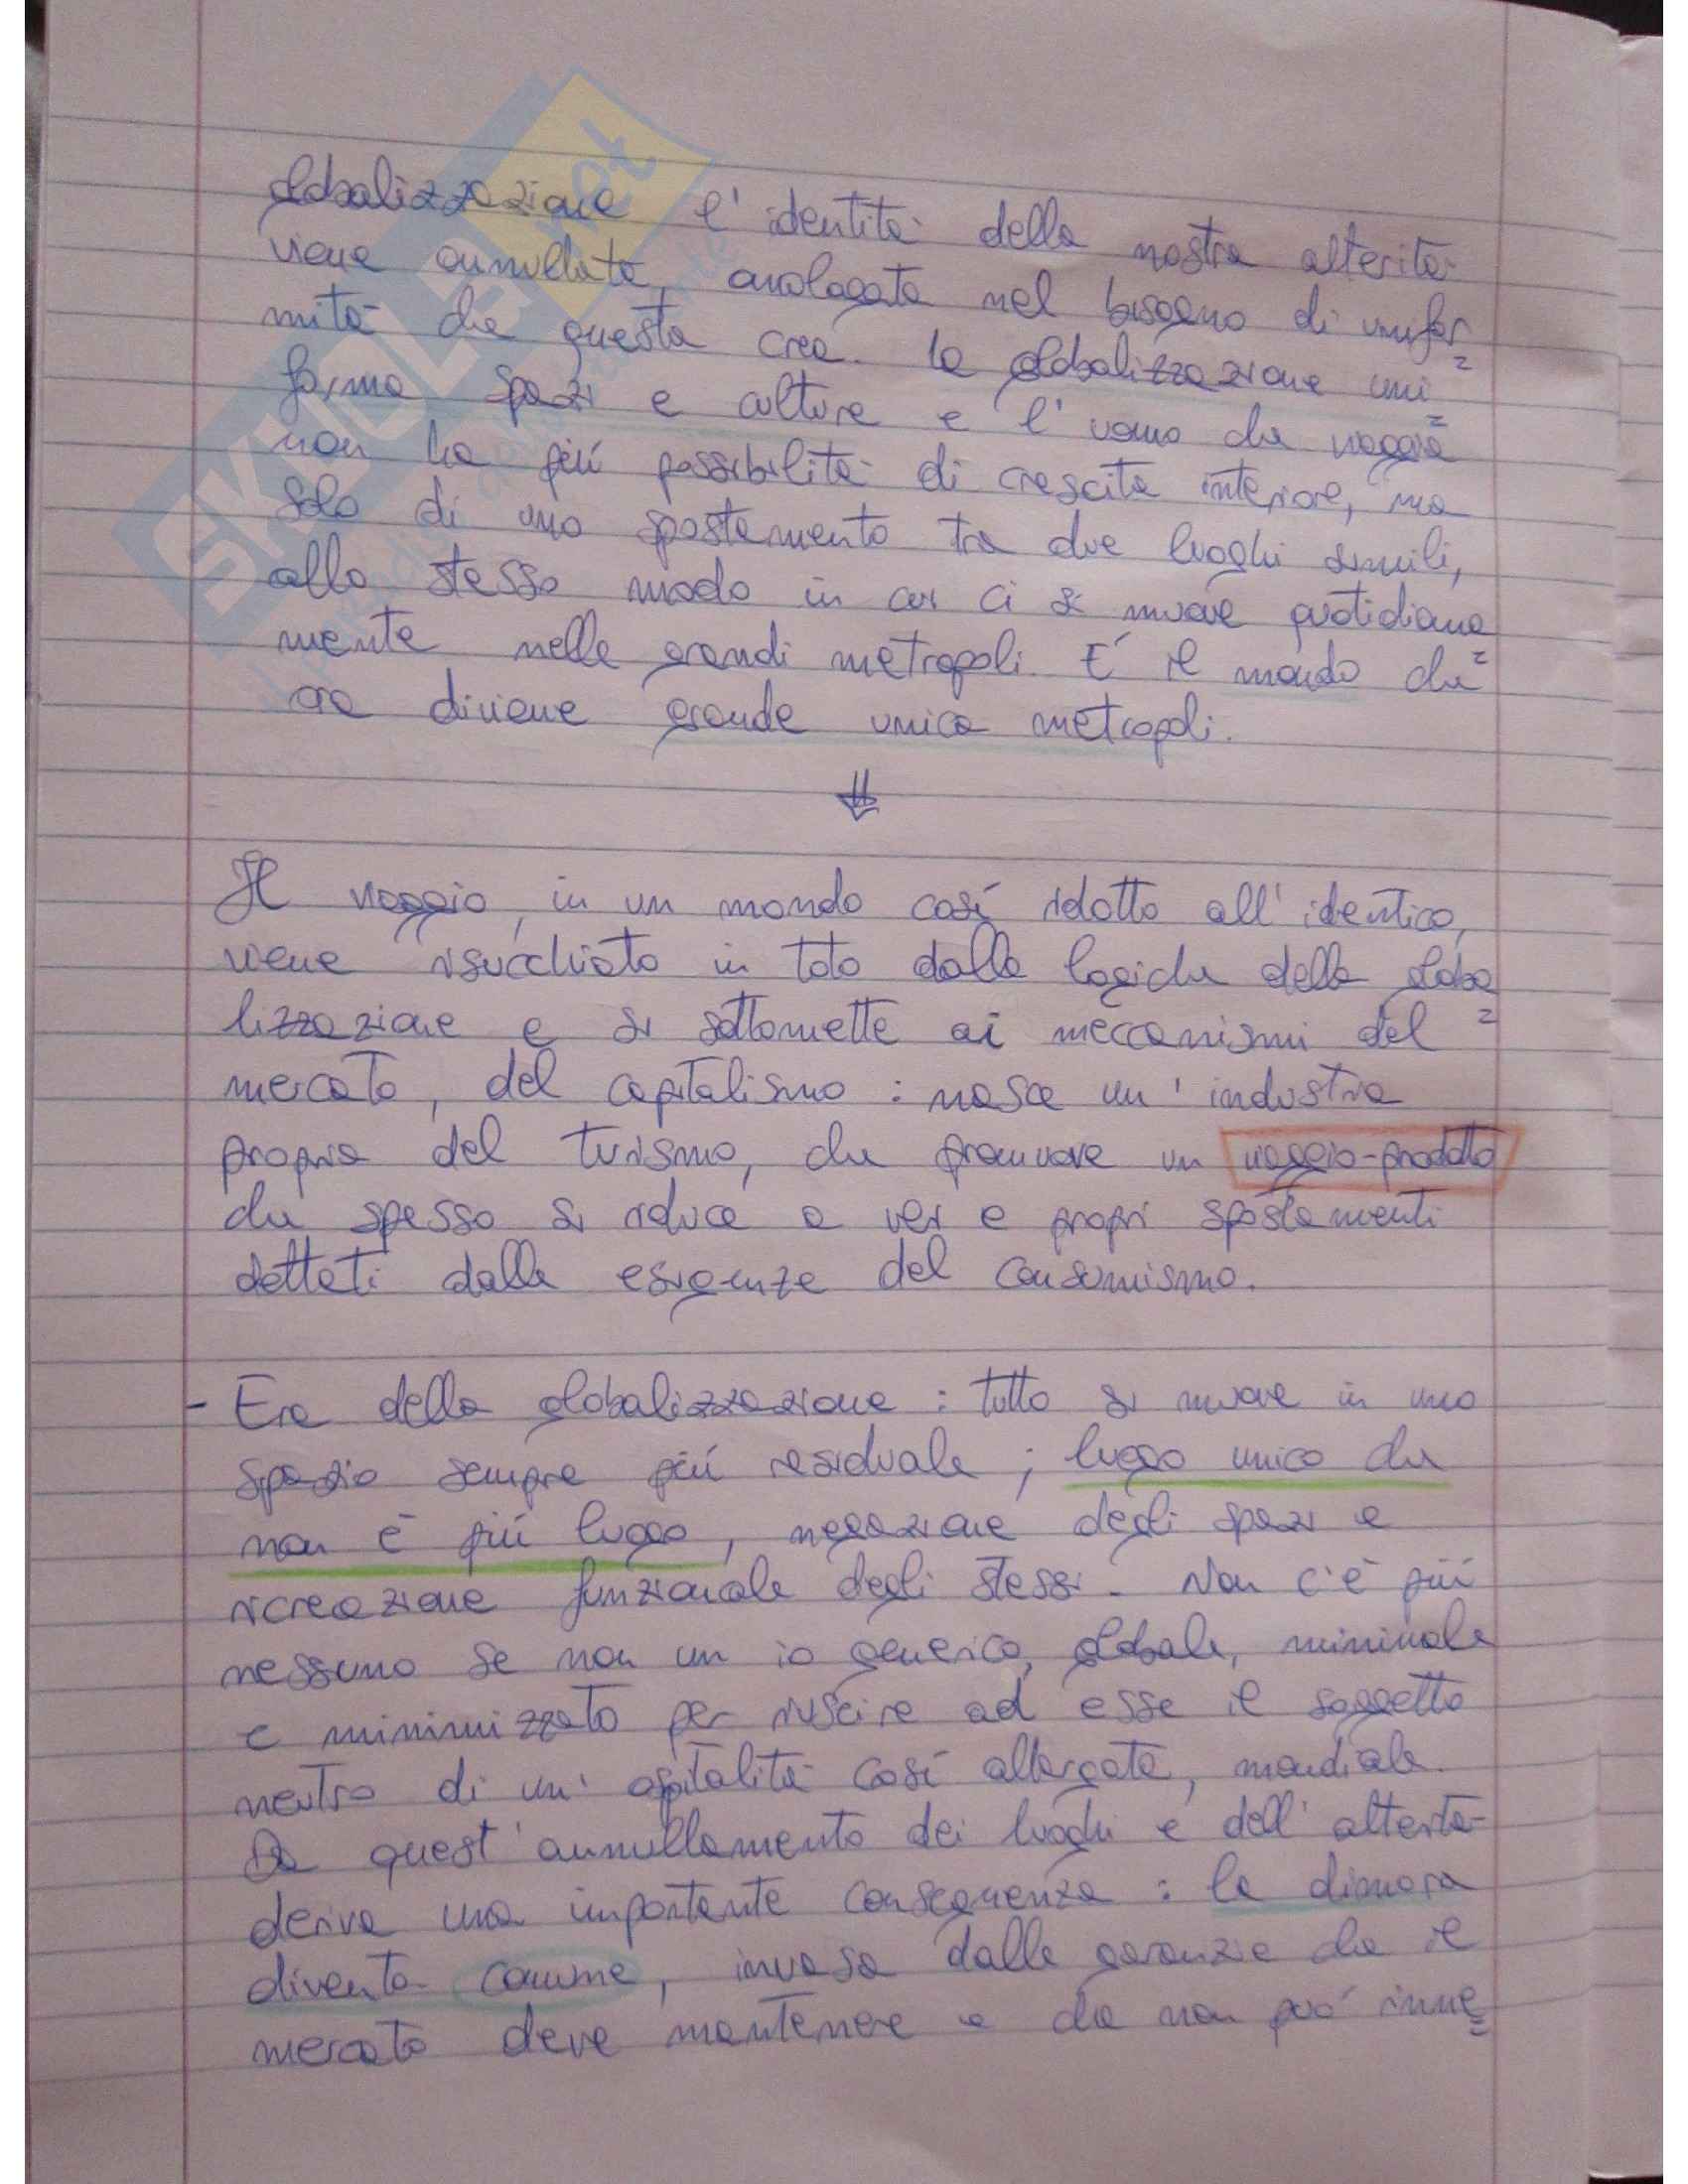 SKUOLA.net
globalizzazione l'identità della nostra alterità
viene annullata, omologata nel bisogno di unifor=
mità che questa crea. la globalizzazione uni=
forma spazi e culture e l'uomo che viaggia
non ha più possibilità di crescita interiore, ma
solo di uno spostamento tra due luoghi simili,
allo stesso modo in cui ci si muove quotidiana=
mente nelle grandi metropoli. É il mondo che
ora diviene grande unica metropoli.
⇓
Il viaggio, in un mondo così ridotto all'identico,
viene risucchiato in toto dalla logica della globa=
lizzazione e si sottomette ai meccanismi del
mercato, del capitalismo: nasce un'industria
propria del turismo, che promuove un viaggio-prodotto
che spesso si riduce a veri e propri spostamenti
dettati dalle esigenze del consumismo.
- Era della globalizzazione: tutto si muove in uno
spazio sempre più residuale; luogo unico che
non è più luogo, negazione degli spazi e
ricreazione funzionale degli stessi. Non c'è più
nessuno se non un io generico, globale, minimale
e minimizzato per riuscire ad esse il soggetto
neutro di un'ospitalità così allargata, mondiale.
Da quest'annullamento dei luoghi e dell'alterità
deriva una importante conseguenza: la dimora
diventa comune, invasa dalle garanzie che il
mercato deve mantenere e che non può rinne=